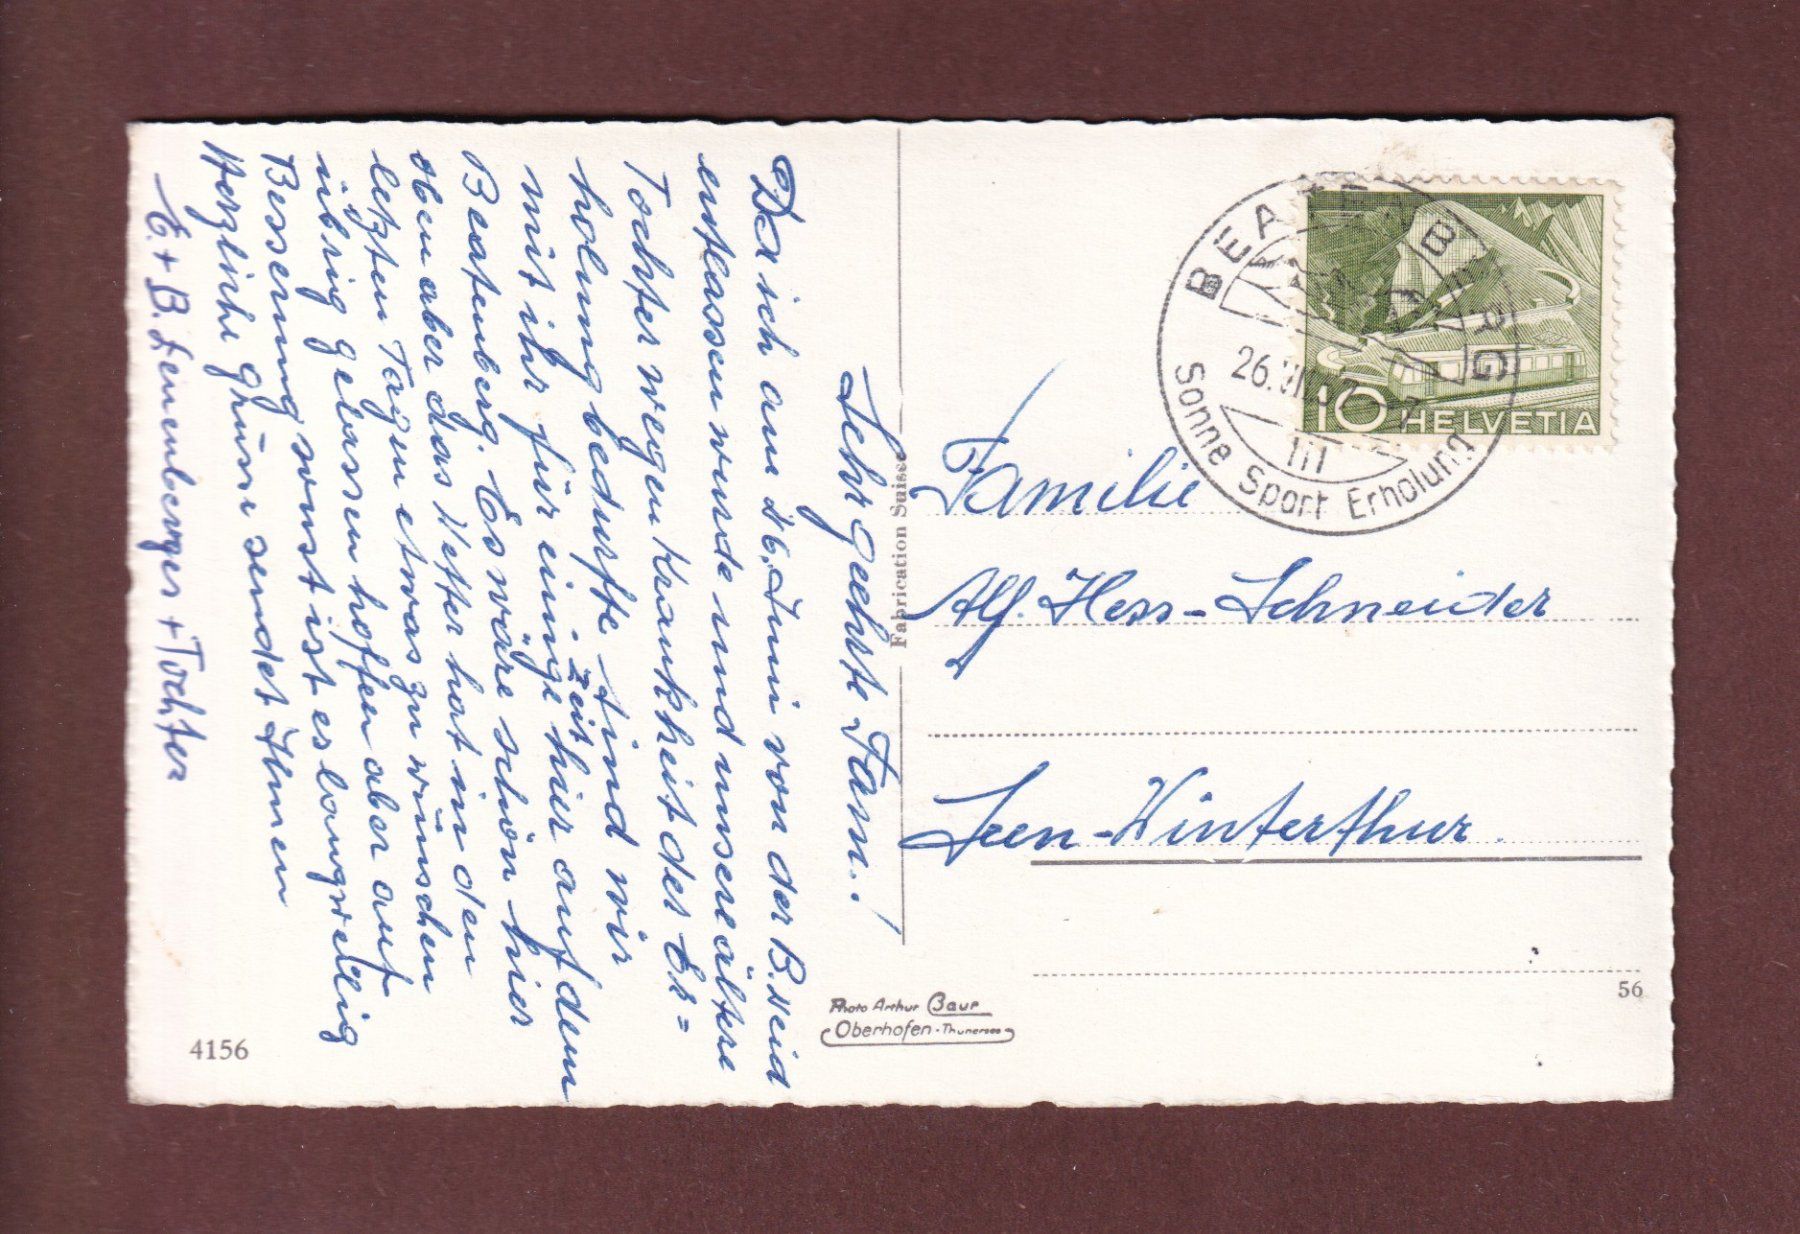 Sehr geehrte Fam.!
Da ich am 16. Juni von der B.Heid
entlassen wurde und unsere ältere
Tochter wegen Krankheit der Er=
holung bedurfte sind wir
mit ihr für einige Zeit hier auf dem
Beatenberg. Es wäre schön hier
oben aber das Wetter hat in den
letzten Tagen etwas zu wünschen
übrig gelassen hoffen aber auf
Besserung sonst ist es langweilig
Herzliche Grüsse sendet Ihnen
E. + B. Leuenberger + Tochter
4156
Fabrication Suisse
Photo Arthur Baur
Oberhofen-Thunersee
BEATENBERG
26.VII.
Sonne Sport Erholung
10 HELVETIA
Familie
Alf. Hess-Schneider
Seen-Winterthur.
56